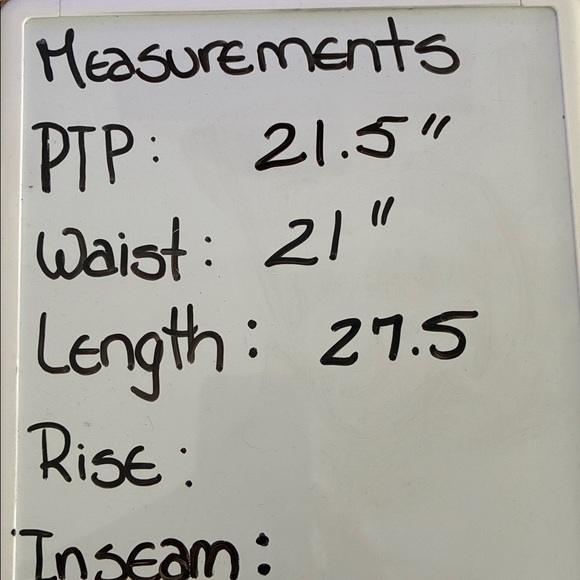 Measurements
PTP: 21.5"
Waist: 21"
Length: 27.5
Rise:
Inseam: